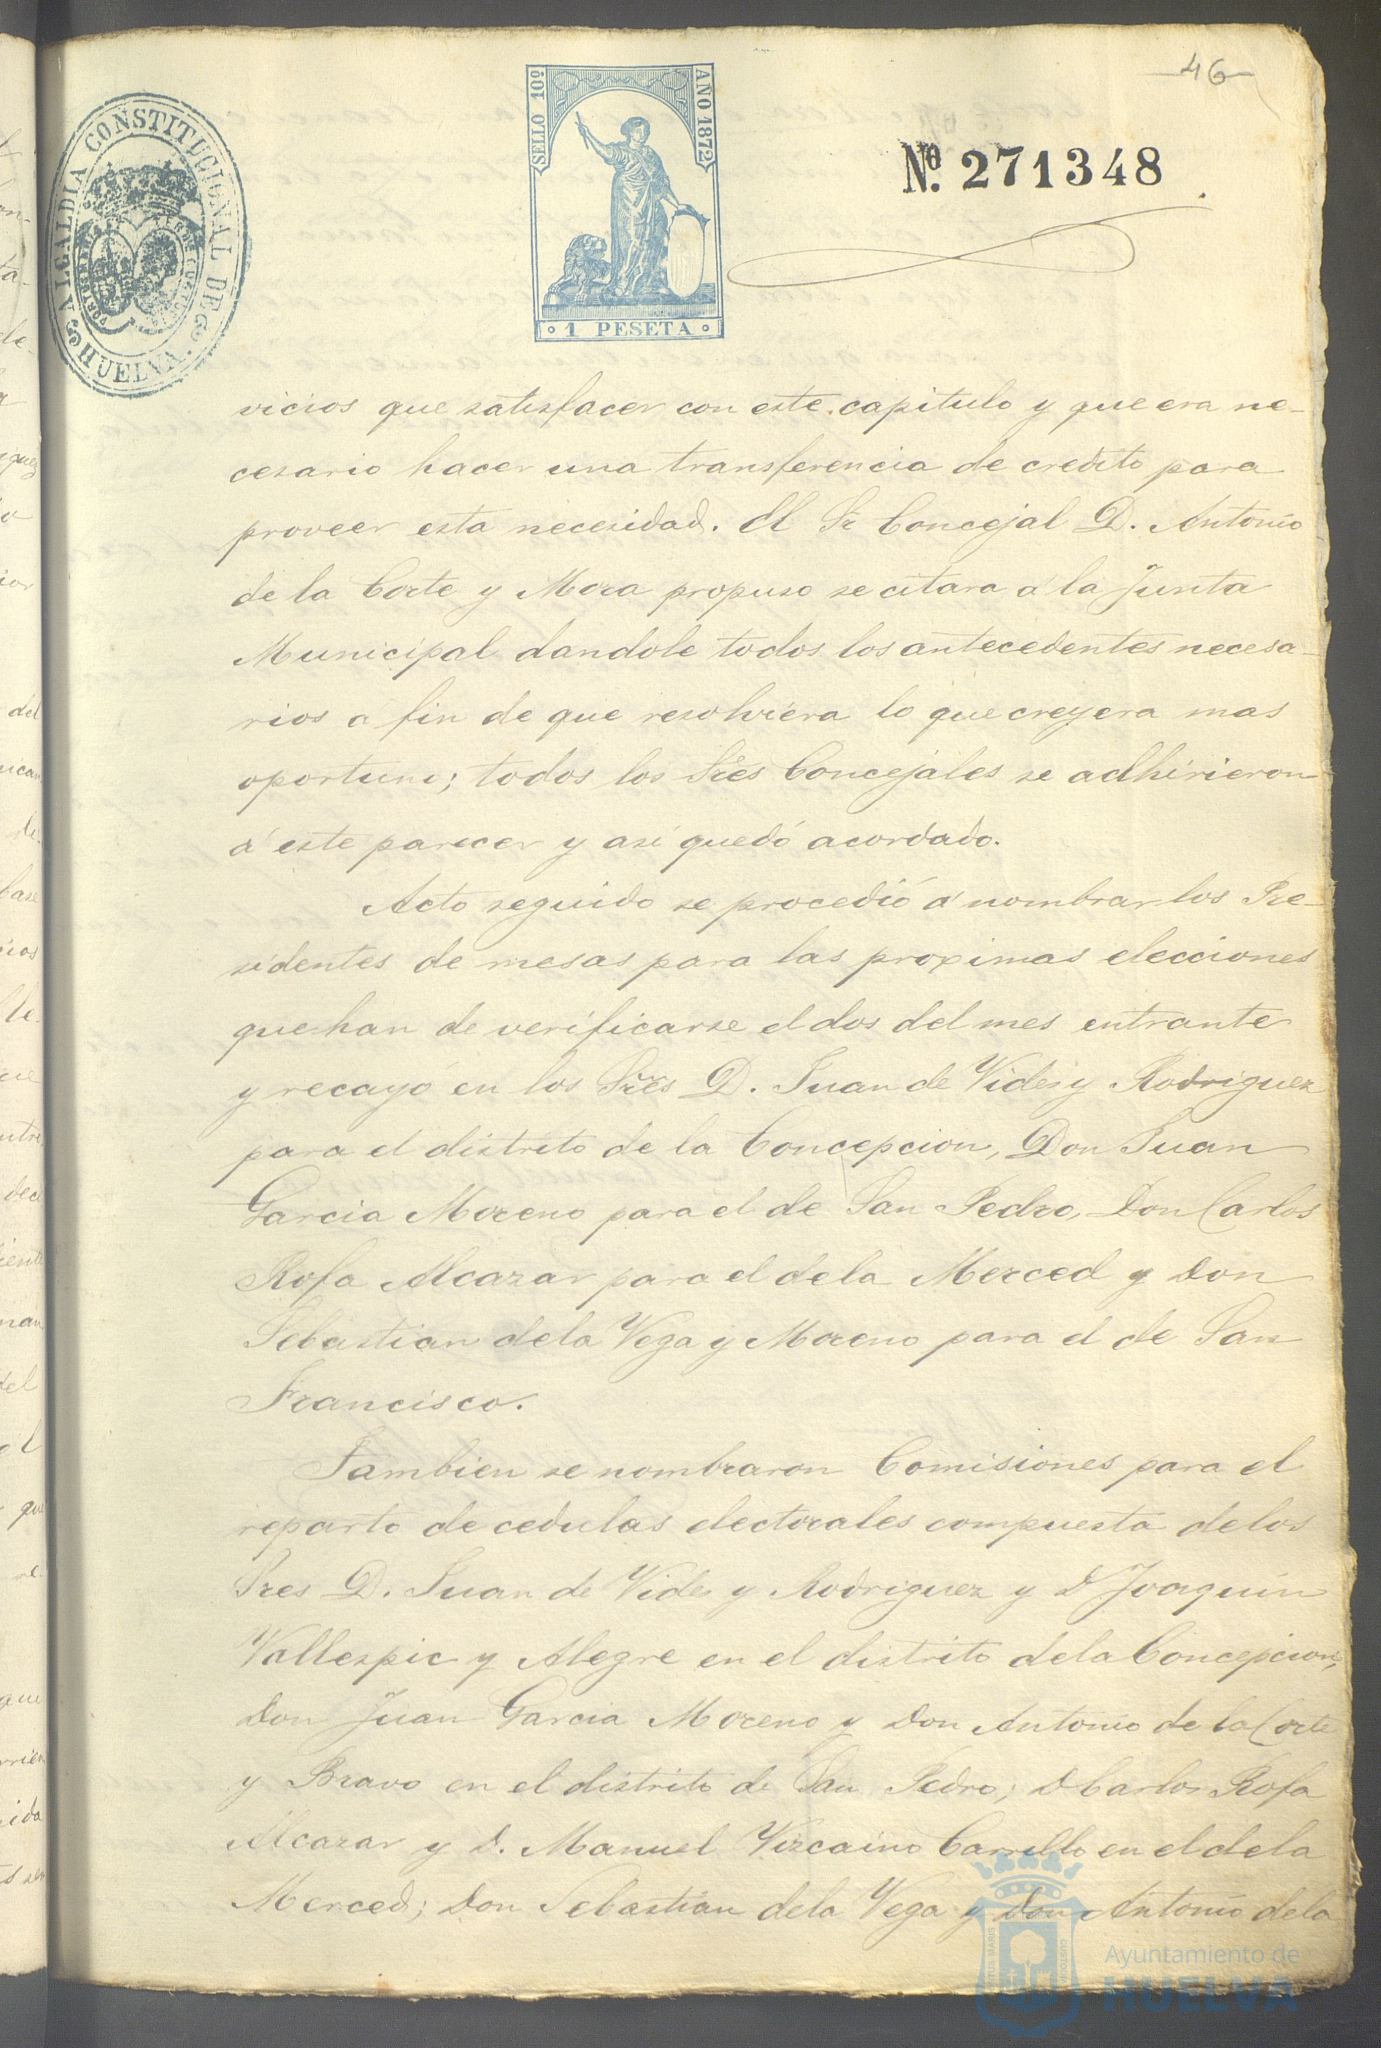 46
SELLO 10º
AÑO 1872
Nº. 271348
ALCALDIA CONSTITUCIONAL DE HUELVA.
1 PESETA
vicios que satisfacer con este capitulo y que era ne-
cesario hacer una transferencia de credito para
proveer esta necesidad. El Sr Concejal D. Antonio
de la Corte y Mora propuso se citara á la Junta
Municipal dandole todos los antecedentes necesa-
rios á fin de que resolviera lo que creyera mas
oportuno; todos los Sres Concejales se adhirieron
á este parecer y así quedó acordado.
Acto seguido se procedió á nombrar los Pre-
sidentes de mesas para las proximas elecciones
que han de verificarse el dos del mes entrante
y recayó en los Sres D. Juan de Vides y Rodriguez
para el distrito de la Concepcion, Don Juan
Garcia Moreno para el de San Pedro, Don Carlos
Rofa Alcazar para el de la Merced y Don
Sebastian de la Vega y Moreno para el de San
Francisco.
Tambien se nombraron Comisiones para el
reparto de cedulas electorales compuesta de los
Sres D. Juan de Vides y Rodriguez y D Joaquin
Vallespic y Alegre en el distrito de la Concepcion,
Don Juan Garcia Moreno y Don Antonio de la Corte
y Bravo en el distrito de San Pedro; D Carlos Rofa
Alcazar y D. Manuel Vizcaino Carrillo en el de la
Merced; Don Sebastian de la Vega y Don Antonio de la
Ayuntamiento de
HUELVA